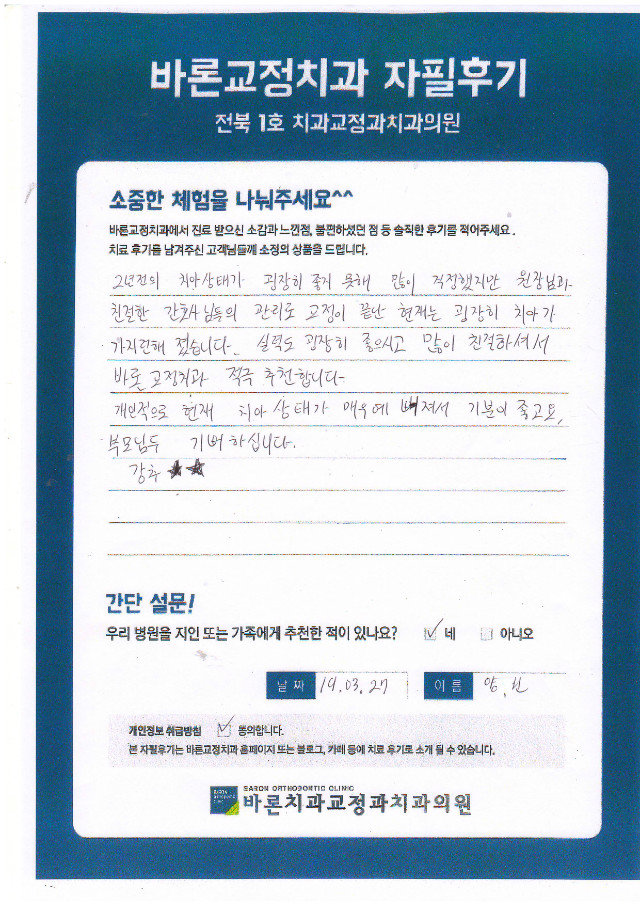 바론교정치과 자필후기
전북 1호 치과교정과치과의원
소중한 체험을 나눠주세요^^
바론교정치과에서 진료 받으신 소감과 느낀점, 불편하셨던 점 등 솔직한 후기를 적어주세요.
치료 후기를 남겨주신 고객님들께 소정의 상품을 드립니다.
2년전의 치아상태가 굉장히 좋지 못해 많이 걱정했지만 원장님과
친절한 간호사님들의 관리로 교정이 끝난 현재는 굉장히 치아가
가지런해 졌습니다. 실력도 굉장히 좋으시고 많이 친절하셔서
바론 교정치과 적극 추천합니다-
개인적으로 현재 치아 상태가 매우 예뻐져서 기분이 좋고요,
부모님두 기뻐하십니다.
강추 ★★
간단 설문!
우리 병원을 지인 또는 가족에게 추천한 적이 있나요? ☑ 네 □ 아니오
날 짜 19.03.27 이 름
개인정보 취급방침 ☑ 동의합니다.
본 자필후기는 바론교정치과 홈페이지 또는 블로그, 카페 등에 치료 후기로 소개 될 수 있습니다.
BARON ORTHODONTIC CLINIC
바론치과교정과치과의원